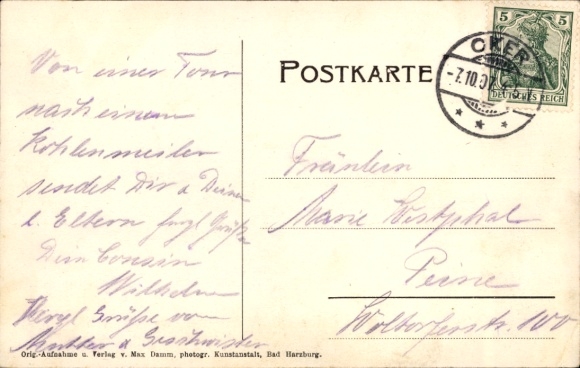 Von einer Tour
nach einem
Kohlenmeiler
sendet Dir & Deinen
l. Eltern Grüße
Dein Cousin
Wilhelm
Herzl Grüße von
Mutter & Geschwister
POSTKARTE
5 5
DEUTSCHES REICH
OKER
-7.10.07
Fräulein
Marie Westphal
Peine
Woltorferstr. 100
Orig.-Aufnahme u. Verlag v. Max Damm, photogr. Kunstanstalt, Bad Harzburg.